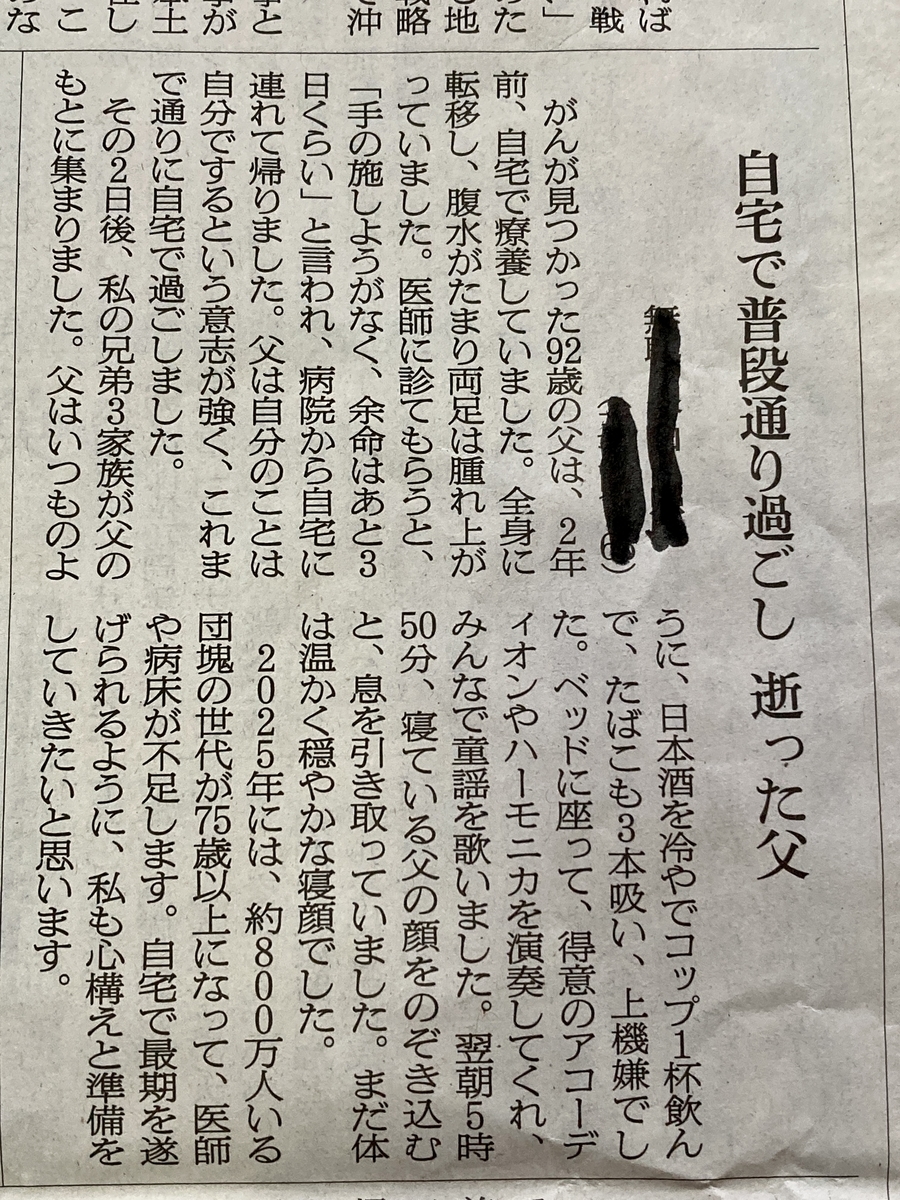 自宅で普段通り過ごし 逝った父
無職
6)
がんが見つかった92歳の父は、2年
前、自宅で療養していました。全身に
転移し、腹水がたまり両足は腫れ上が
っていました。医師に診てもらうと、
「手の施しようがなく、余命はあと3
日くらい」と言われ、病院から自宅に
連れて帰りました。父は自分のことは
自分でするという意志が強く、これま
で通りに自宅で過ごしました。
その2日後、私の兄弟3家族が父の
もとに集まりました。父はいつものよ
うに、日本酒を冷やでコップ1杯飲ん
で、たばこも3本吸い、上機嫌でし
た。ベッドに座って、得意のアコーデ
ィオンやハーモニカを演奏してくれ、
みんなで童謡を歌いました。翌朝5時
50分、寝ている父の顔をのぞき込む
と、息を引き取っていました。まだ体
は温かく穏やかな寝顔でした。
2025年には、約800万人いる
団塊の世代が75歳以上になって、医師
や病床が不足します。自宅で最期を遂
げられるように、私も心構えと準備を
していきたいと思います。
れば
戦
い」
めた
も地
戦略
で沖
事と
事が
本土
在し
こ
な